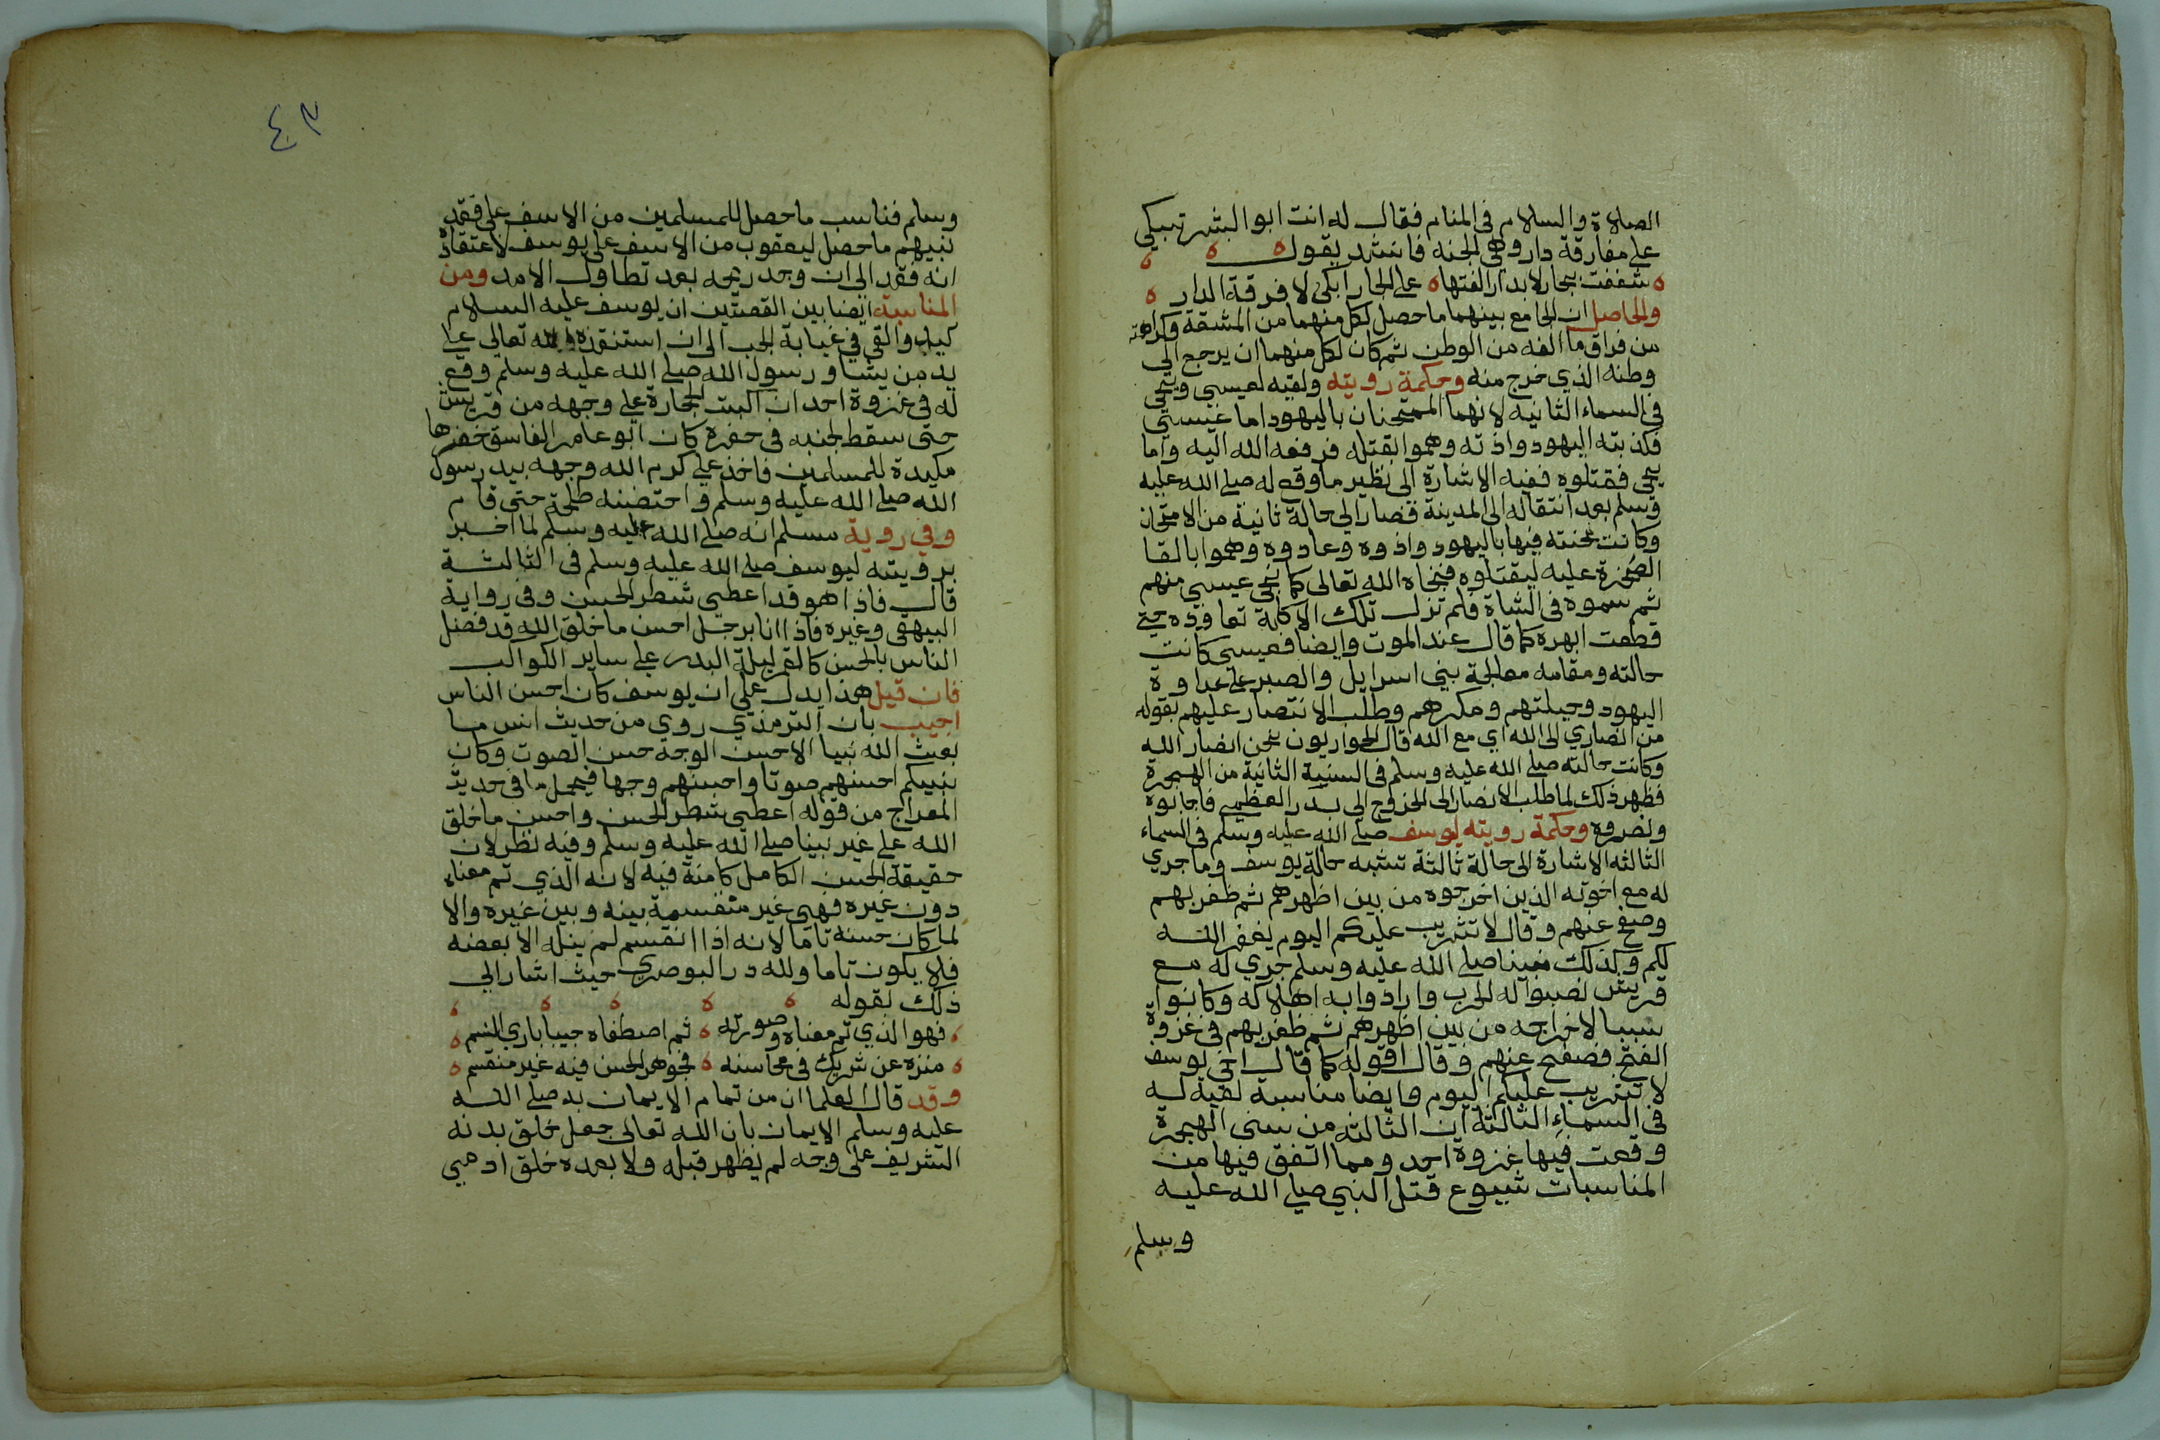 الصلاة والسلام في المنام فقال له انت ابو البشر تبكي
على مفارقة دار وهي الجنه فانشد بقوله
شغفت بجار لا بدار الفتها على الجار ابكي لا فرقة الدار
والحاصل ان الجامع بينهما ما حصل لكل منهما من المشقة وكراهة
من فراق ما الفه من الوطن ثم كان لكل منهما ان يرجع الى
وطنه الذي خرج منه وحكمة رويته ولقيه لعيسي ويحي
في السماء الثانيه لانهما الممتحنان باليهود اما عيسي
فكذبته اليهود واذته وهموا بقتله فرفعه الله اليه واما
يحي فقتلوه ففيه الاشارة الى نظير ما وقع له صلى الله عليه
وسلم بعد انتقاله الى المدينة فصار الي حالة ثانية من الامتحان
وكانت محنته فيها باليهود واذوه وعادوه وهموا بالقا
الصخرة عليه ليقتلوه فنجاه الله تعالى كما نجي عيسي منهم
ثم سموه في الشاة فلم تزل تلك الاكلة تعاوده حتى
قطعت ابهره كما قال عند الموت وايضا فعيسي كانت
حالته ومقامه معالجة بني اسرايل والصبر على عداوة
اليهود وحيلتهم ومكرهم وطلب الانتصار عليهم بقوله
من انصاري الى الله اي مع الله قال الحواريون نحن انصار الله
وكانت حالته صلى الله عليه وسلم في السنية الثانية من الهجرة
فظهر ذلك لما طلب الانصار الى الخروج الي بدر العظمي فاجابوه
ونصروه وحكمة رويته ليوسف صلى الله عليه وسلم في السماء
الثالثه الاشارة الى حالة ثالثة تشبه حالة يوسف وما جري
له مع اخوته الذين اخرجوه من بين اظهرهم ثم ظفر بهم
وصفح عنهم وقال لا تثريب عليكم اليوم يغفر الله
لكم وكذلك نبينا صلى الله عليه وسلم جري له مع
قريش نصبوا له الحرب وارادوا به اهلاكه وكانوا
سببا لاخراجه من بين اظهرهم ثم ظفر بهم في غزوة
الفتح فصفح عنهم وقال اقول كما قال اخي يوسف
لا تثريب عليكم اليوم وايضا مناسبة لقيه له
في السماء الثالثة ان الثالثه من سني الهجرة
وقعت فيها غزوة احد ومما اتفق فيها من
المناسبات شيوع قتل النبي صلى الله عليه
وسلم
٤٣
وسلم فناسب ما حصل للمسلمين من الاسف على فقد
نبيهم ما حصل ليعقوب من الاسف على يوسف لاعتقاده
انه فقد الى ان وجد ريحه بعد تطاول الامد ومن
المناسبة ايضا بين القصتين ان يوسف عليه السلام
كيد والقي في غيابة الجب الى ان استنقذه الله تعالى على
يد من يشا ورسول الله صلى الله عليه وسلم وقع
له في غزوة احد ان البت الحجارة على وجهه من قريش
حتى سقط لجنبه في حفرة كان ابو عامر الفاسق حفرها
مكيدة للمسلمين فاخذ علي كرم الله وجهه بيد رسول
الله صلى الله عليه وسلم واحتضنه طلحة حتى قام
وفي روية مسلم انه صلى الله عليه وسلم لما اخبر
برؤيته ليوسف صلى الله عليه وسلم في الثالثة
قال فاذا هو قد اعطي شطر الحسن وفي رواية
البيهقي وغيره فاذا انا برجل احسن ما خلق الله قد فضل
الناس بالحسن كالقمر ليلة البدر على ساير الكواكب
فان قيل هذا يدل على ان يوسف كان احسن الناس
اجيب بان الترمذي روي من حديث انس ما
بعث الله نبيا الا حسن الوجه حسن الصوت وكان
نبيكم احسنهم صوتا واحسنهم وجها فيحمل ما في حديث
المعراج من قوله اعطي شطر الحسن واحسن ما خلق
الله على غير نبينا صلى الله عليه وسلم وفيه نظر لان
حقيقة الحسن الكامل كامنة فيه لانه الذي تم معناه
دون غيره فهي غير منقسمة بينه وبين غيره والا
لما كان حسنه تاما لانه اذا انقسم لم ينله الا بعضه
فلا يكون تاما ولله در البوصري حيث اشار الي
ذلك بقوله
فهو الذي تم معناه وصورته ثم اصطفاه حبيبا باري النسم
منزه عن شريك في محاسنه فجوهر الحسن فيه غير منقسم
وقد قال العلما ان من تمام الايمان به صلى الله
عليه وسلم الايمان بان الله تعالى جعل خلق بدنه
الشريف على وجه لم يظهر قبله ولا بعده خلق ادمي